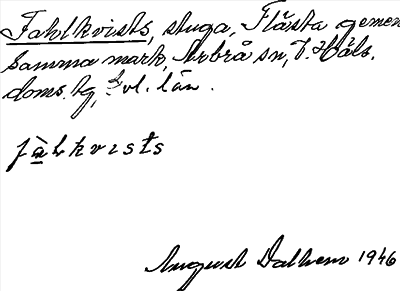 Fahlkvists, stuga, Flästa gemen
samma mark, Arbrå sn, V. Häls.
doms. hg, Gvl. län.
fàlkvists
August Dalhem 1946